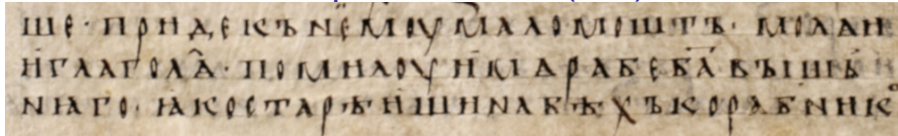 ше· придекъ н҄емоу маломошть· молѧи
и глаголѧ· помилоуи мѧ рабе б҃а вꙑшьн҄ꙗего· ꙗко старѣишина бѣхъ корабьникъ